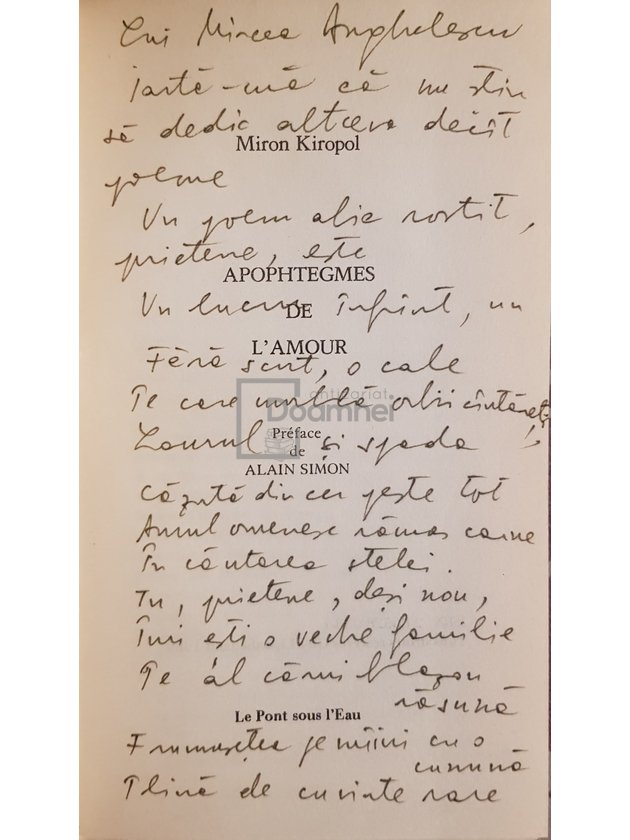 Lui Mircea Anghelescu
iartă-mă că nu știu
să dedic altceva decît
Miron Kiropol
poeme
Un poem abia rostit,
prietene, este
APOPHTEGMES
Un lucru înfrînt, un
DE
L'AMOUR
Fără scut, o cale
antichariat
Pe care umblă orbii cîntăreți,
Doamnei
Laurul și spada
Préface
de
ALAIN SIMON
Căzută din cer peste tot
Anul omenesc rămas carne
În căutarea stelei.
Tu, prietene, deși nou,
Îmi ești o veche familie
Pe al cărui blazon
răsună
Le Pont sous l'Eau
Frumusețea pe mîini cu o
cunună
Plină de cuvinte rare